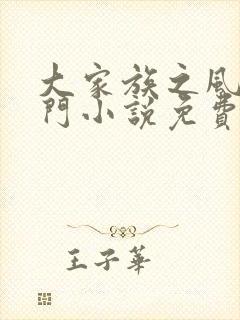 大家族之風
門小說免費
王子華